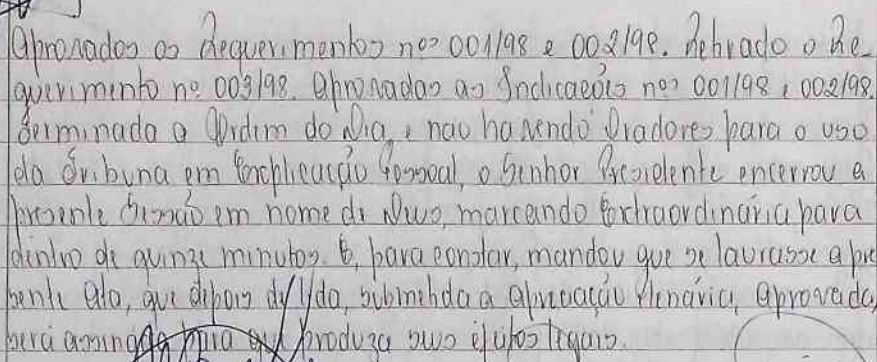 Aprovados os Requerimentos nºs 001/98 e 002/98. Retirado o Re-
querimento nº 003/98. Aprovadas as Indicações nºs 001/98 e 002/98.
Terminada a Ordem do Dia, e não havendo Oradores para o uso
da Tribuna em Explicação Pessoal, o Senhor Presidente encerrou a
presente Sessão em nome de Deus, marcando Extraordinária para
dentro de quinze minutos. E, para constar, mandou que se lavrasse a pre
sente Ata, que depois de lida, submetida a apreciação Plenária, aprovada,
será assinada para que produza seus efeitos legais.